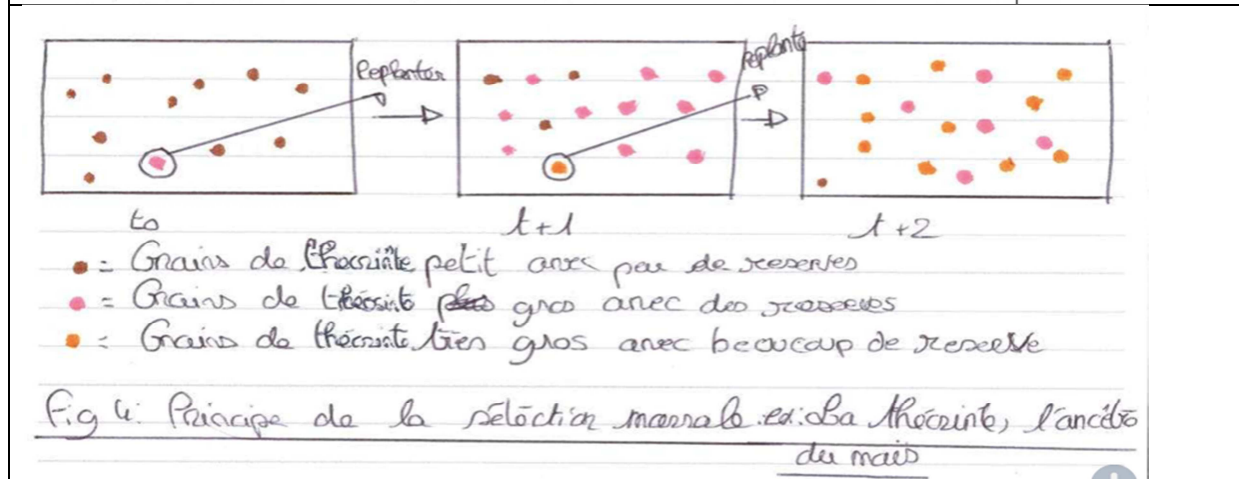 Replanter
replante
to
t+1
t+2
= Grains de théosinte petit avec peu de reserves
= Grains de théosinte gros avec des reserves
= Grains de théosinte très gros avec beaucoup de reserve
Fig 4: Principe de la sélection massale. ex: La théosinte, l'ancêtre
du maïs